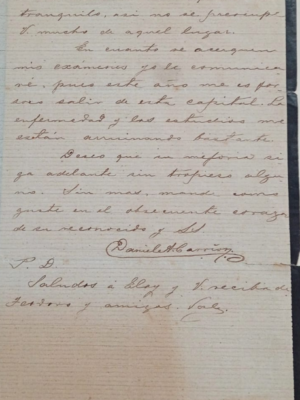 tranquilo, asi no se preocupe
V. mucho de aquel lugar.
En cuanto se acerquen
mis exámenes yo le comunica
ré, pues este año me es for
zoso salir de esta capital. La
enfermedad y los estudios me
están arruinando bastante.
Deseo que su mejoria si
ga adelante sin tropiezo algu
no. Sin mas, mande como
guste en el obsecuente corazon
de su reconocido y SS
Daniel A Carrión
P. D
Saludos á Eloy y V. reciba de
Teodoro y amigos. Vale